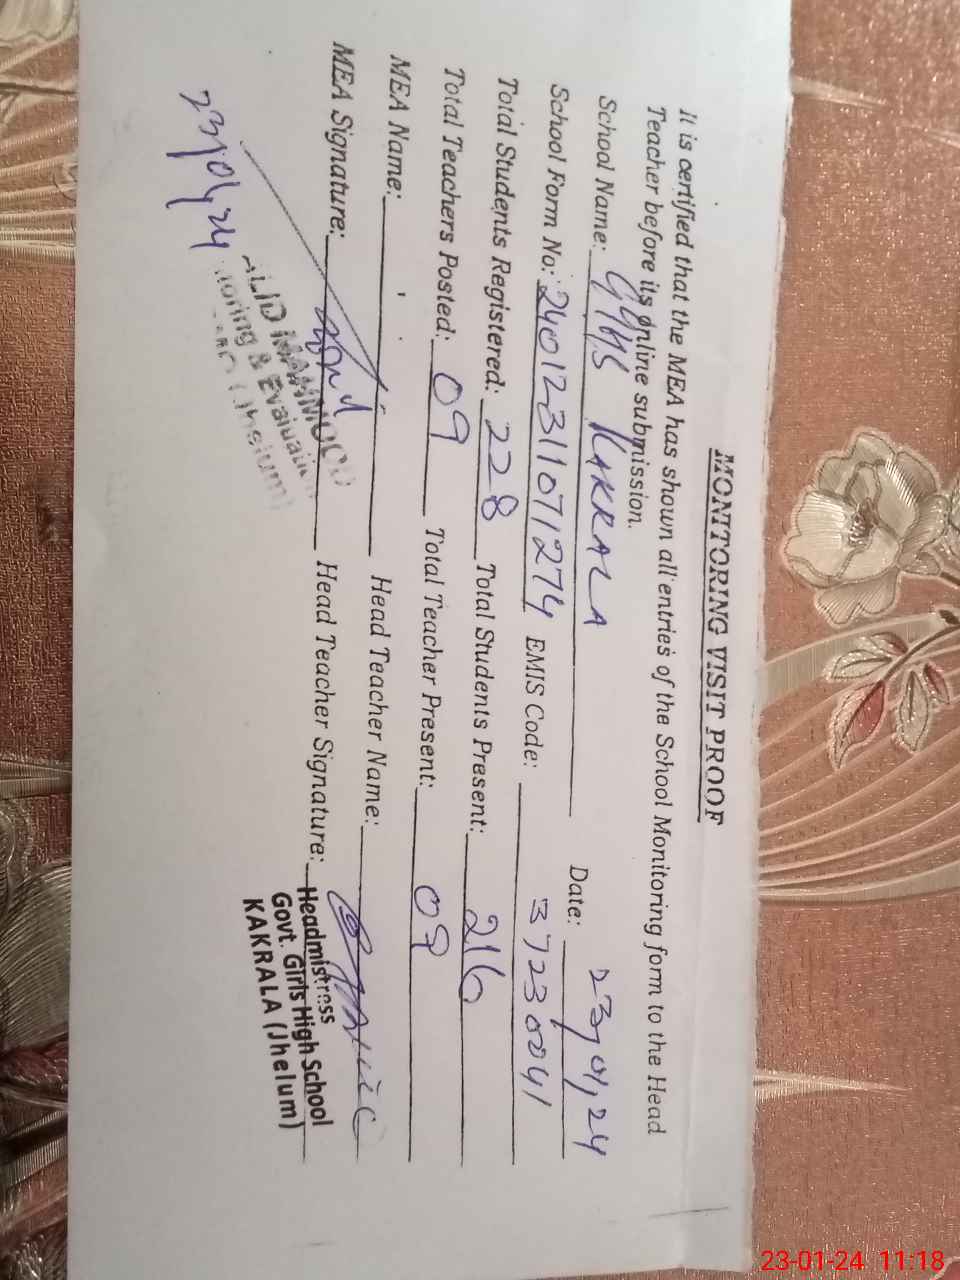 MONITORING VISIT PROOF
It is certified that the MEA has shown all entries of the School Monitoring form to the Head
Teacher before its online submission.
School Name: GGHS KAKRALA Date: 23,01,24
School Form No: 24012311071274 EMIS Code: 37230041
Total Students Registered: 228 Total Students Present: 216
Total Teachers Posted: 09 Total Teacher Present: 09
MEA Name: Head Teacher Name:
MEA Signature: Head Teacher Signature:
Headmistress
Govt. Girls High School
KAKRALA (Jhelum)
23,01,24
MAHMOOD
& Evaluation
(Jhelum)
23-01-24 11:18